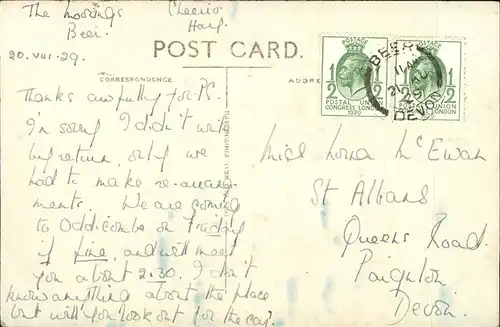 The Moorings
Beer.
20.VIII.29.
Cheerio
POST CARD.
CORRESPONDENCE
ADDRE
Thanks awfully for P.S.
I'm sorry I didn't write
by return, only we
had to make re-arrange-
ments. We are coming
to Oddicombe on Friday
if fine, and will meet
you about 2.30. I don't
know anything about the place
but will you look out for the car.
1/2 1/2
POSTAL UNION
CONGRESS, LONDON
1929
1/2 1/2
POSTAL UNION
LONDON
BEER
DEVON
Miss Lorna McEwan
St Albans
Queens Road
Paignton
Devon.